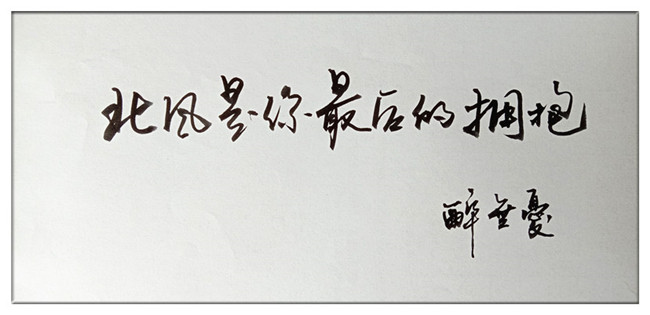 北风是你最后的拥抱
醉无憂